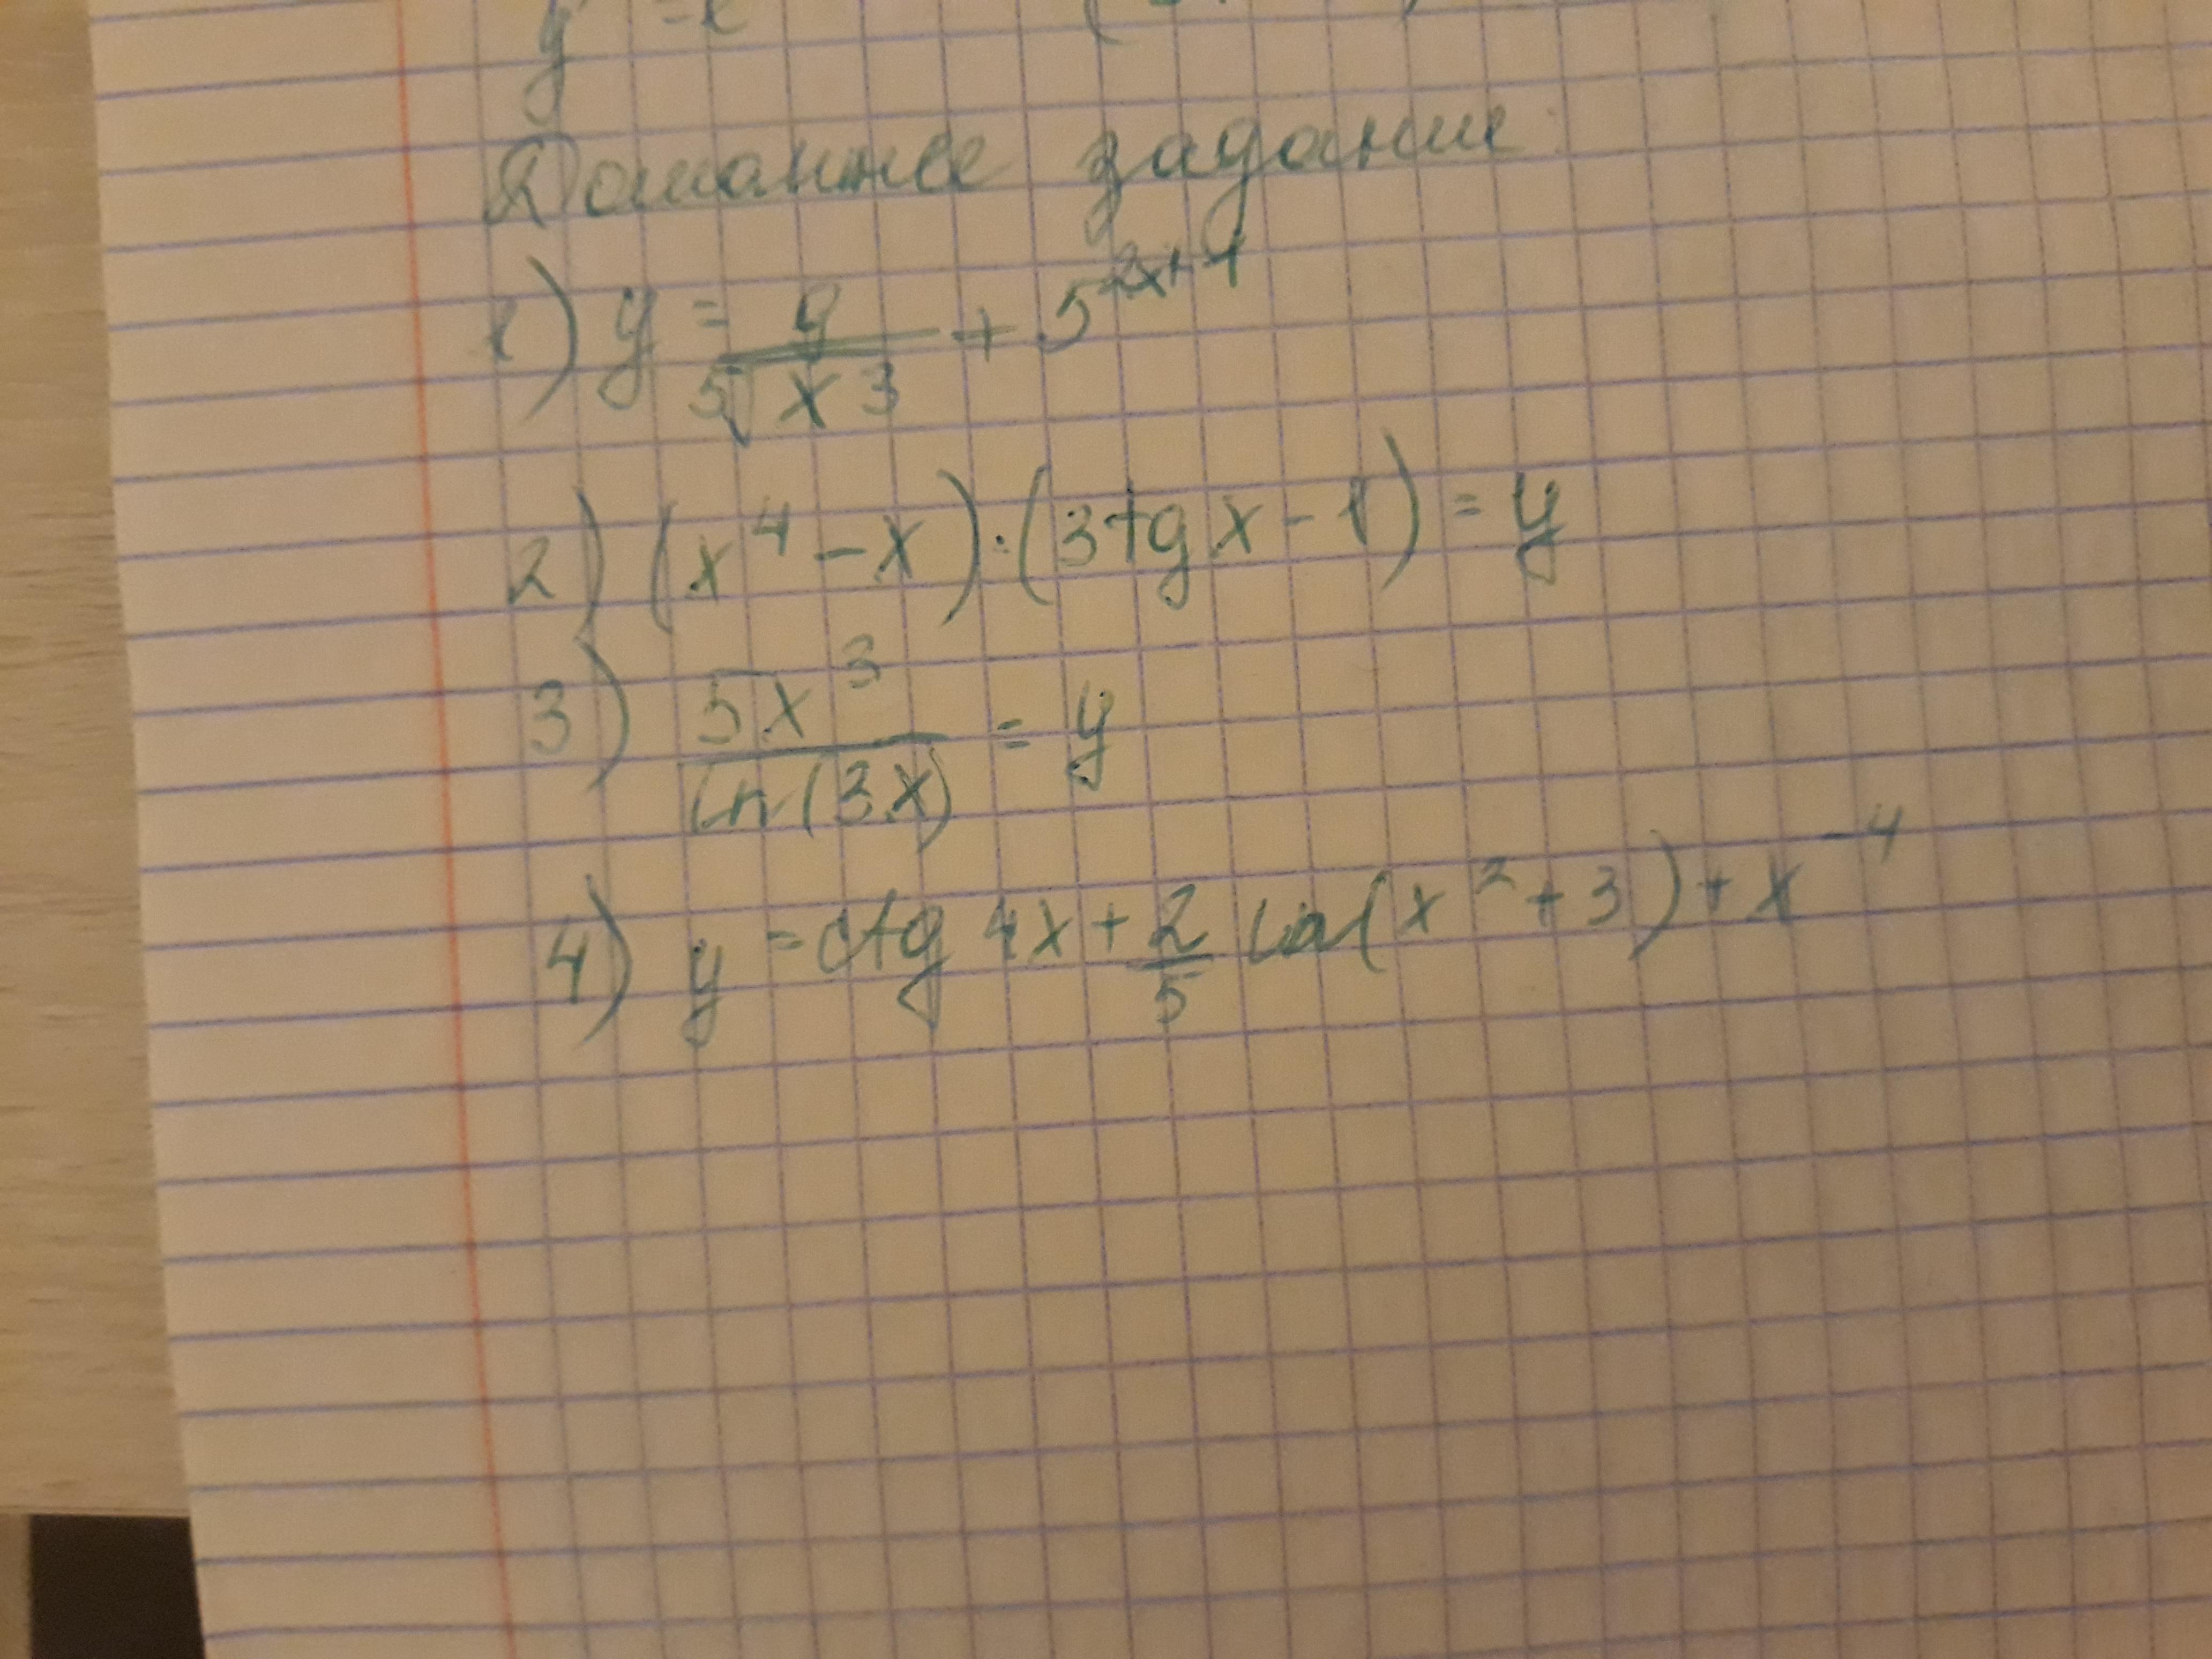 Домашнее задание
1) y = 9/⁵√x³ + 5^(2x+1)
2) (x⁴ - x) · (3tg x - 1) = y
3) 5x³/ln(3x) = y
4) y = ctg 4x + 2/5 ln(x² + 3) + x⁻⁴